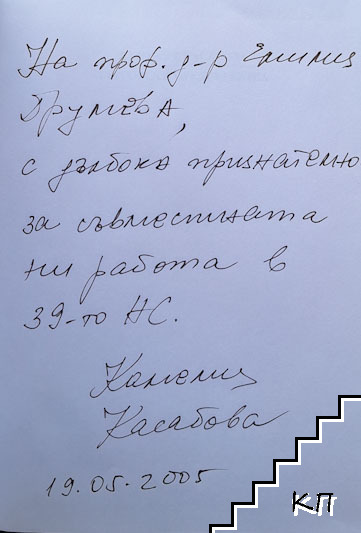 На проф. д-р Емилия
Друмева,
с дълбока признателно
за съвместната
ни работа в
39-то НС.
Камелия
Касабова
19.05.2005
КП